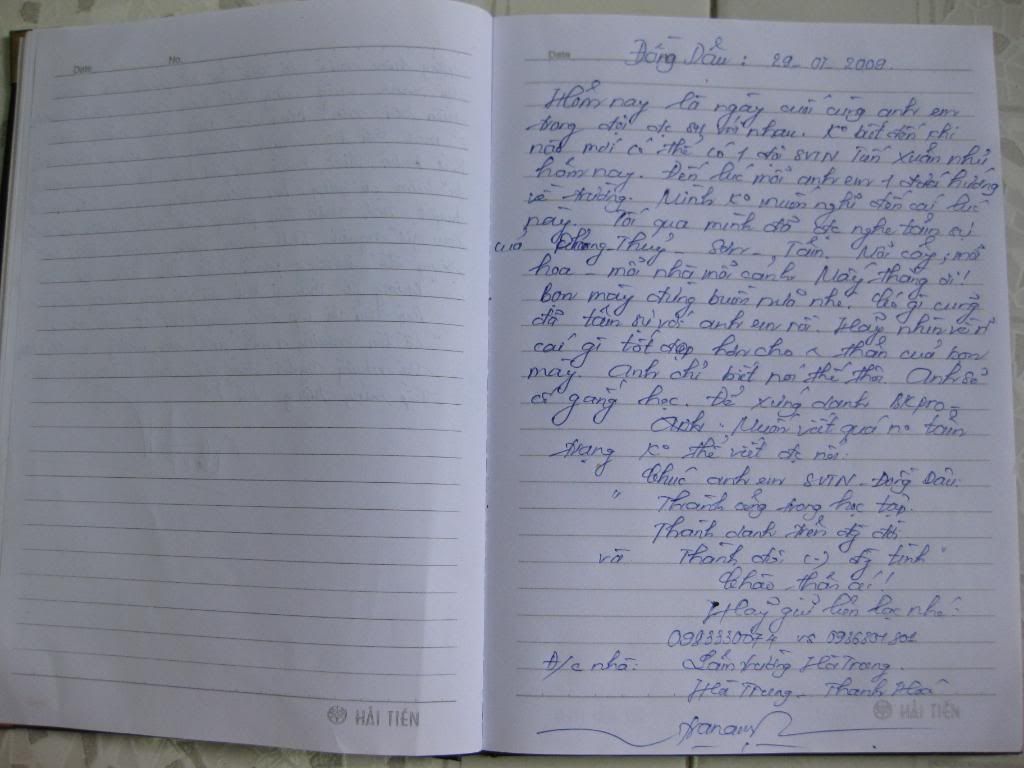 Date No.
Date Đồng Dầu : 29_07_2009.
Hôm nay là ngày cuối cùng anh em
trong đội đc sụ với nhau. Ko biết đến khi
nào mới có thể có 1 đội SVTN Tấn xuẩn như
hôm nay. Đến lúc mỗi anh em 1 đưá hướng
về trường. Mình Ko muốn nghĩ đến cái lúc
này. Tối qua mình đã đc nghe tâm sự
cuả Phương Thuỷ - Sơn - , Tâm. Mỗi cây ; mỗi
hoa - mỗi nhà mỗi cảnh. Mấy thằng ơi!
bọn mày đừng buồn nưã nhé thế gì cũng
đã tâm sự với anh em rồi. Hãy nhìn về
cái gì tốt đẹp hơn cho thân cuả bọn
mày. Anh chỉ biết nói thế thôi. Anh sẽ
cố gắng học. Để xứng danh BKpro_
Anh : Muốn viết quá no tâm
trạng Ko thể viết đc nôĩ.
Chúc anh em SVTN - Đồng Dầu.
" Thành công trong học tập.
Thành danh trên đg đời
và Thành đôi (-) đg tình "
Chào thân ái!
Hãy giữ liên lạc nhé :
0983330074 và 0936801801
Đ/c nhà: Lâm trường Hà Trung.
Hà Trung - Thanh Hoá
HẢI TIẾN
HẢI TIẾN